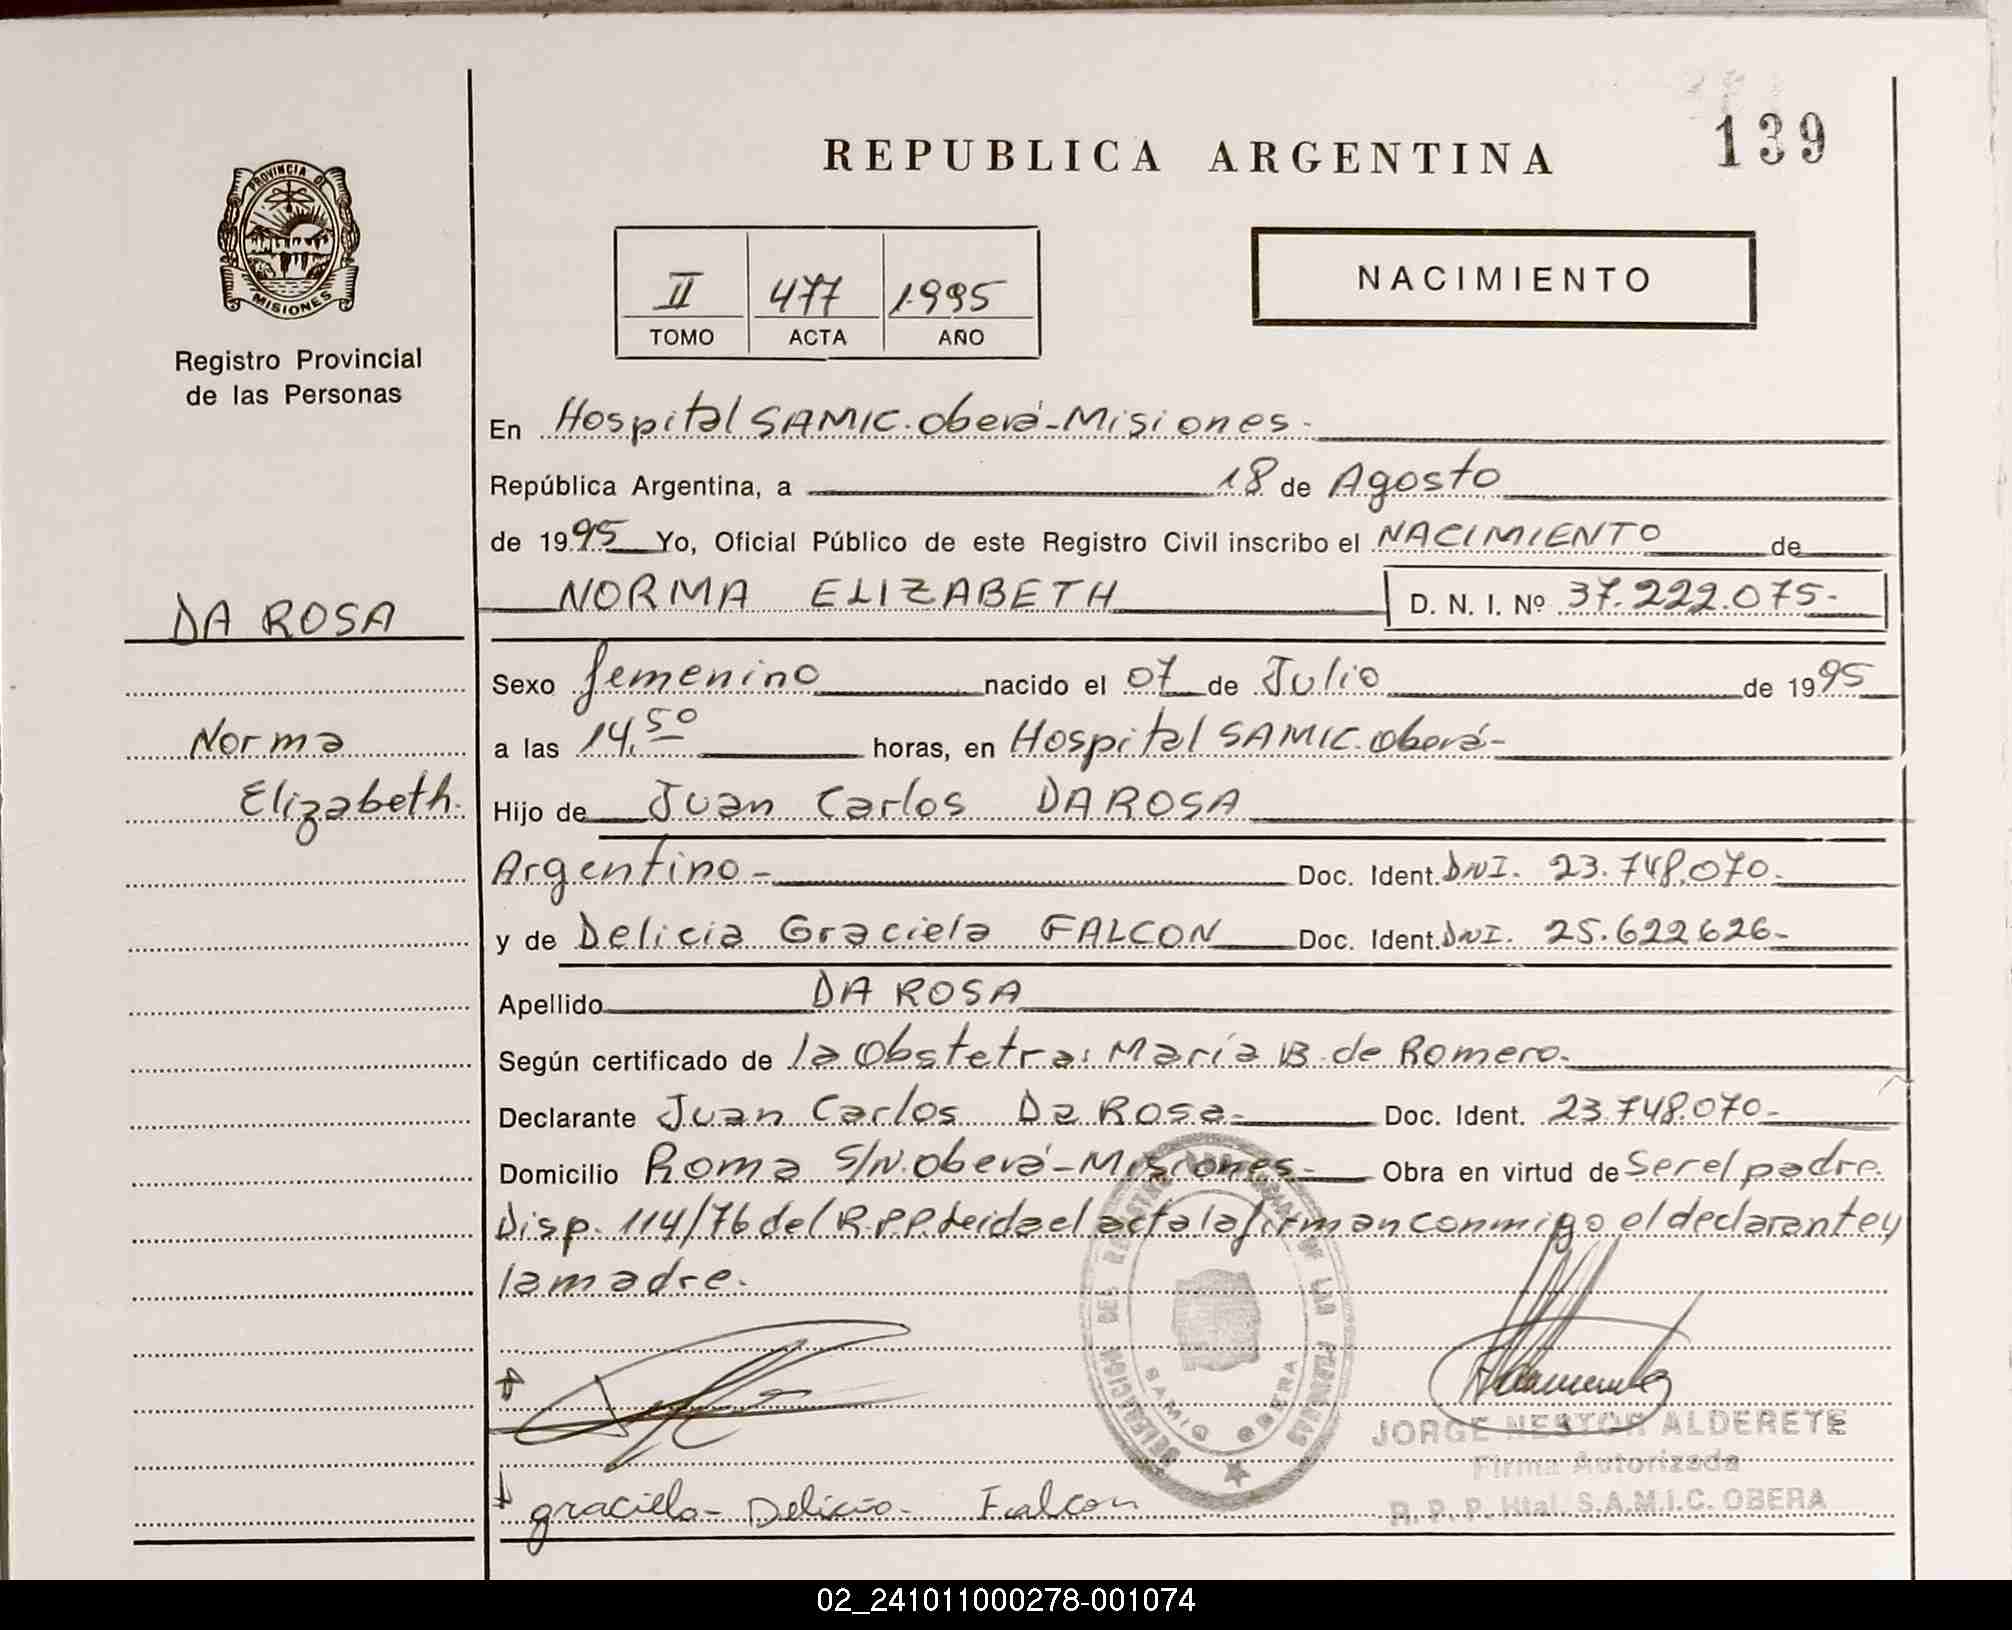 REPUBLICA ARGENTINA
139
PROVINCIA DE
MISIONES
Registro Provincial
de las Personas
II 477 1995
TOMO ACTA AÑO
NACIMIENTO
En Hospital SAMIC. Oberá - Misiones.
República Argentina, a 18 de Agosto
de 1995 Yo, Oficial Público de este Registro Civil inscribo el NACIMIENTO de
NORMA ELIZABETH D. N. I. Nº 37.222.075-
DA ROSA
Norma
Elizabeth.
Sexo femenino nacido el 07 de Julio de 1995
a las 14.50 horas, en Hospital SAMIC. Oberá-
Hijo de Juan Carlos DA ROSA
Argentino - Doc. Ident. DNI. 23.748.070.
y de Delicia Graciela FALCON Doc. Ident. DNI. 25.622626-
Apellido DA ROSA
Según certificado de la Obstetra: María B. de Romero.
Declarante Juan Carlos Da Rosa- Doc. Ident. 23.748.070-
Domicilio Roma S/N. Oberá - Misiones- Obra en virtud de Ser el padre.
Disp. 114/76 del R.P.P. Leida el acta la firman conmigo el declarante y
la madre.
DELEGACION DEL REGISTRO PROVINCIAL DE LAS PERSONAS
SAMIC OBERA
JORGE NESTOR ALDERETE
Firma Autorizada
R. P. P. Htal. S.A.M.I.C. OBERA
graciela - Delicia - Falcon
02_241011000278-001074